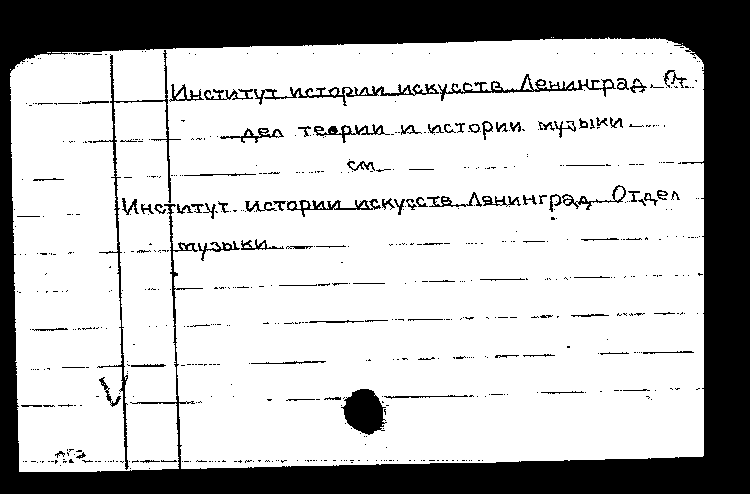 Институт истории искусств. Ленинград. От
дел теории и истории музыки.
см.
Институт истории искусств. Ленинград. Отдел
музыки.
V